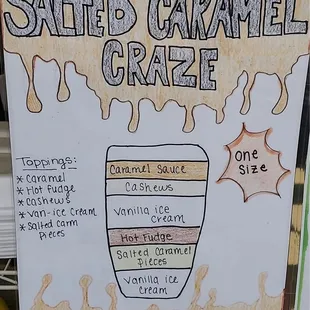 SALTED CARAMEL
CRAZE
Toppings:
* Caramel
* Hot Fudge
* Cashews
* Van-ice Cream
* Salted carm
Pieces
Caramel Sauce
Cashews
Vanilla ice
Cream
Hot Fudge
Salted Caramel
Pieces
Vanilla ice
Cream
One
Size